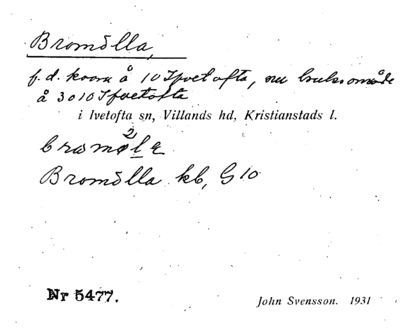 Bromölla,
f. d. kvarn å 10 Ivetofta, nu bruksområde
å 3010 Ivetofta
i Ivetofta sn, Villands hd, Kristianstads l.
Bromölla kb, G 10
Nr 5477.
John Svensson. 1931